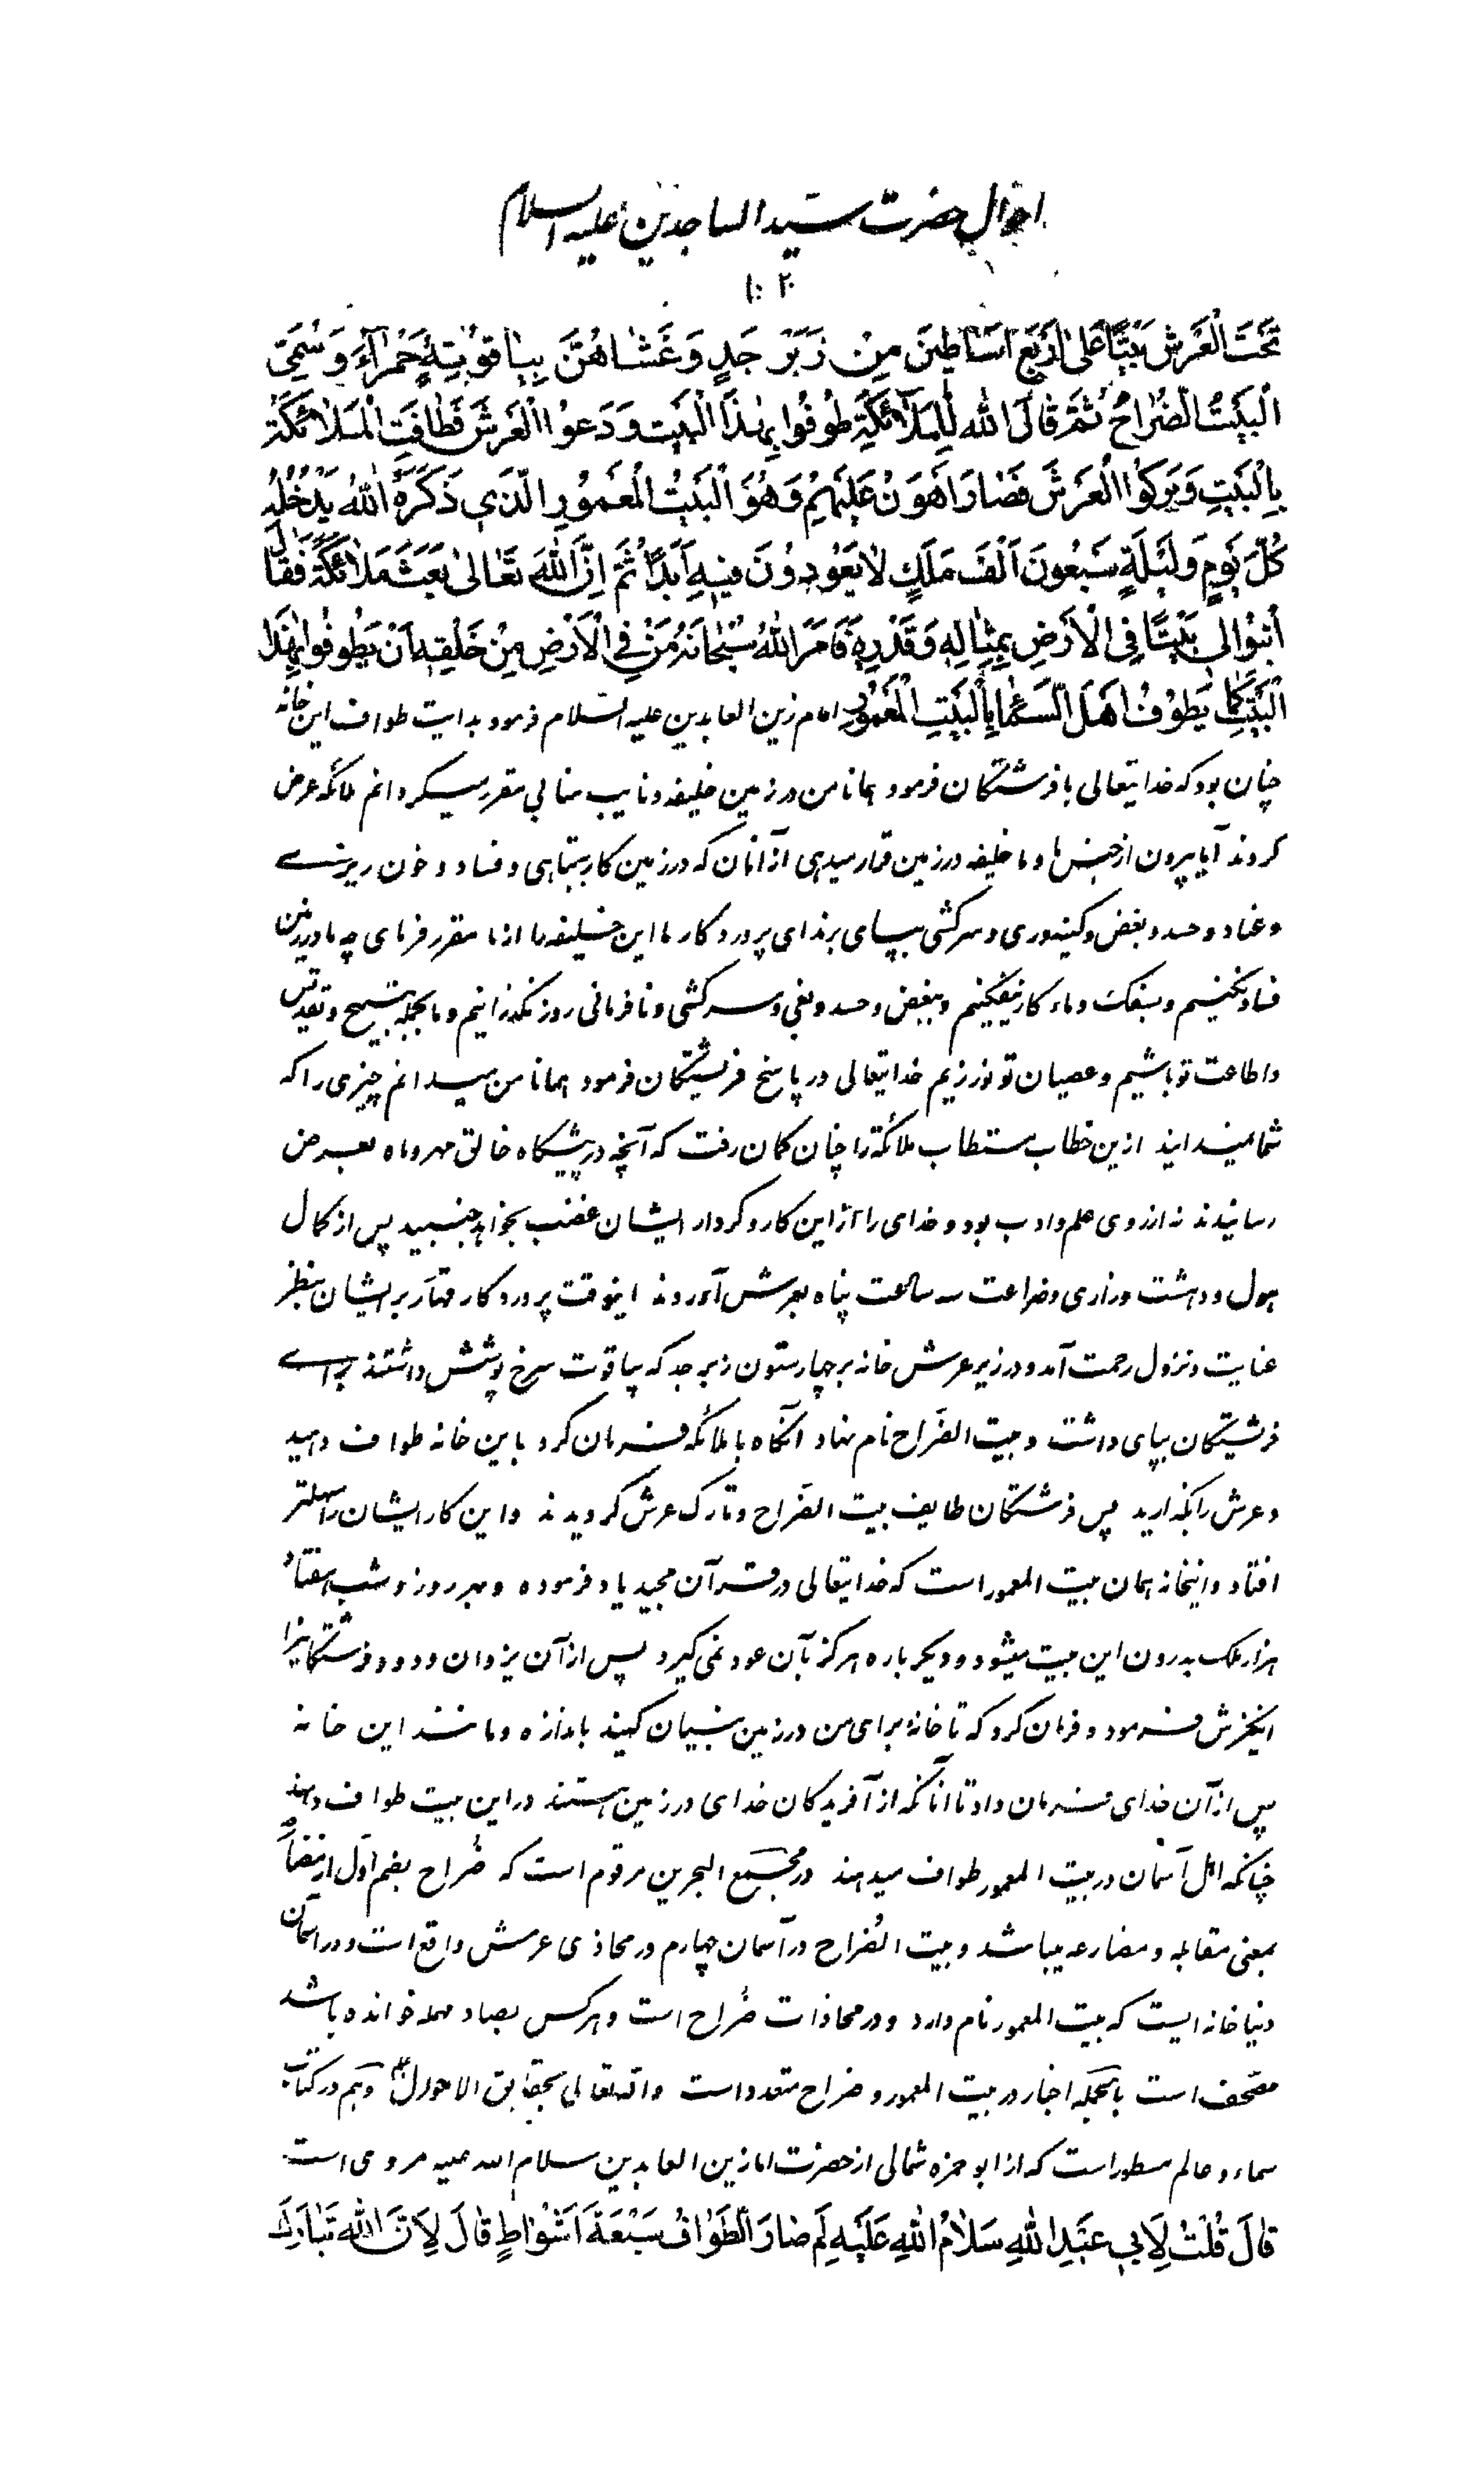 احوال حضرت سید الساجدین علیه السلام
تَحْتَ الْعَرْشِ بَيْتًا عَلىٰ اَرْبَعِ اَسٰاطينَ مِنْ زَبَرْ جَدٍ وَ غَشّٰاهُنَّ بِيٰاقُوتَةٍ حَمْرٰآءَ وَ سُمِّيَ
الْبَيْتُ الضُّرٰاحُ ثُمَّ قٰالَ اللّٰه لِلْمَلٰآئِكَةِ طُوفُوا بِهٰذَا الْبَيْتِ وَ دَعوُا الْعَرْشَ فَطٰافَتِ الْمَلاٰئِكَةُ
بِالْبَيْتِ وَ تَرَكوُا الْعَرْشَ فَصٰارَ اَهْوَنُ عَلَيْهِمْ وَ هُوَ الْبَيْتُ الْمَعْمُورِ الَّذي ذَكَرَهُ اللّٰهُ يَدْخُلُهُ
كُلَّ يَوْمٍ وَ لَيْلَةٍ سَبْعُونَ اَلْفَ مَلَكٍ لاٰ يَعُودُونَ فيهِ اَبَدًا ثُمَّ اِنَّ اللّٰهَ تَعٰالىٰ بَعَثَ مَلاٰئِكَةً فَقٰالَ
اُبْنُوا لي بَيْتًا فِي الْاَرْضِ بِمِثٰالِهِ وَ قَدْرِهِ فَاَمَرَ اللّٰهُ سُبْحٰانَهُ مَنْ فِي الْاَرْضِ مِنْ خَلْقِهِ اَنْ يَطُوفُوا بِهٰذَا
الْبَيْتِ كَمٰا يَطُوفُ اَهْلُ السَّمٰآءِ بِالْبَيْتِ الْمَعْمُورِ امام زین العابدین علیه السّلام فرمود بدایت طواف این خانه
چنان بود که خدایتعالی با فرشتگان فرمود همانا من در زمین خلیفه و نایب منابی مقرر میگردانم ملائکه عرض
کردند آیا بیرون از جنس ما و ما خلیفه در زمین قرار میدهی از آنان که در زمین کار بتباهی و فساد و خون ریزی
و عناد و حسد و بغض و کینه‌وری و سرکشی بپای برند ای پروردگار ما این خلیفه را از ما مقرر فرمای چه ما در زمین
فساد نکنیم و بسفک دماء کار نیفکنیم و ببغض و حسد و بغی و سرکشی و نافرمانی روز نگذرانیم و ما بجمله بتسبیح و تقدیس
و اطاعت تو باشیم و عصیان تو نورزیم خدایتعالی در پاسخ فرشتگان فرمود همانا من میدانم چیزی را که
شما نمیدانید ازین خطاب مستطاب ملائکة را چنان گمان رفت که آنچه در پیشگاه خالق مهر و ماه بعرض
رسانیدند نه از روی علم و ادب بود و خدای را از این کار و کردار ایشان غضب بخواهد جنبید پس از کمال
هول و دهشت و زاری و ضراعت سه ساعت پناه بعرش آوردند اینوقت پروردگار قهّار بر ایشان بنظر
عنایت و نزول رحمت آمد و در زیر عرش خانه بر چهار ستون زبرجد که بیاقوت سرخ پوشش داشتند برای
فرشتگان بپای داشت و بیت الضّراح نام نهاد آنگاه با ملائکه فرمان کرد باین خانه طواف دهید
و عرش را بگذارید پس فرشتگان طایف بیت الضّراح و تارک عرش گردیدند و این کار ایشان را سهلتر
افتاد و اینخانه همان بیت المعمور است که خدایتعالی در قرآن مجید یاد فرموده و بهر روز و شب هفتاد
هزار ملک بدرون این بیت میشود و دیگر باره هرگز بآن عود نمی گیرد پس از آن یزدان ودود فرشتگانرا
انگیزش فرمود و فرمان کرد که تا خانهٔ برای من در زمین بنیان کنید باندازه و مانند این خانه
پس از آن خدای فرمان داد تا آنانکه از آفریدگان خدای در زمین هستند در این بیت طواف دهند
چنانکه اهل آسمان در بیت المعمور طواف میدهند در مجمع البحرین مرقوم است که ضُراح بضم اوّل از مضارحه
بمعنی مقابله و مضارعه میباشد و بیت الضُراح در آسمان چهارم در محاذی عرش واقع است و در آسمان
دنیا خانه ایست که بیت المعمور نام دارد و در محاذات ضُراح است و هر کس بصاد مهمله خوانده باشد
مصّحف است بالجمله اخبار در بیت المعمور و ضراح متعدد است و الله تعالی بحقایق الاحوال اعلم و هم در کتاب
سماء و عالم مسطور است که از ابو حمزه ثمالی از حضرت امام زین العابدین سلام الله علیه مروی است
قٰالَ قُلْتُ لِاَبي عَبْدِ اللّٰهِ سَلاٰمُ اللّٰهِ عَلَيْهِ لِمَ صٰارَ الطَّوٰافُ سَبْعَةَ اَشْوٰاطٍ قٰالَ لِاَنَّ اللّٰه تَبٰارَكَ